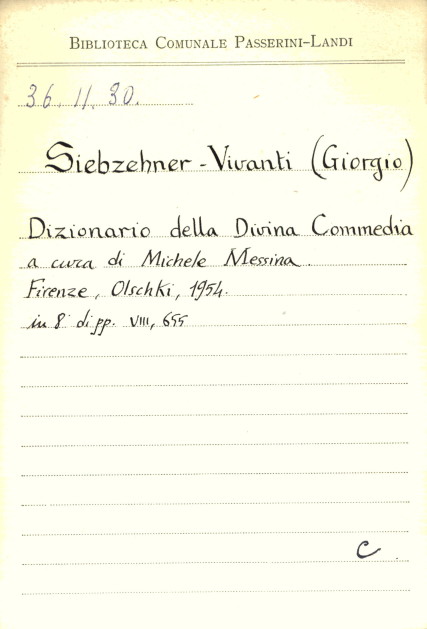 BIBLIOTECA COMUNALE PASSERINI-LANDI
36. 11. 30.
Siebzehner - Vivanti (Giorgio)
Dizionario della Divina Commedia
a cura di Michele Messina.
Firenze, Olschki, 1954.
in 8° di pp. VIII, 655
C.